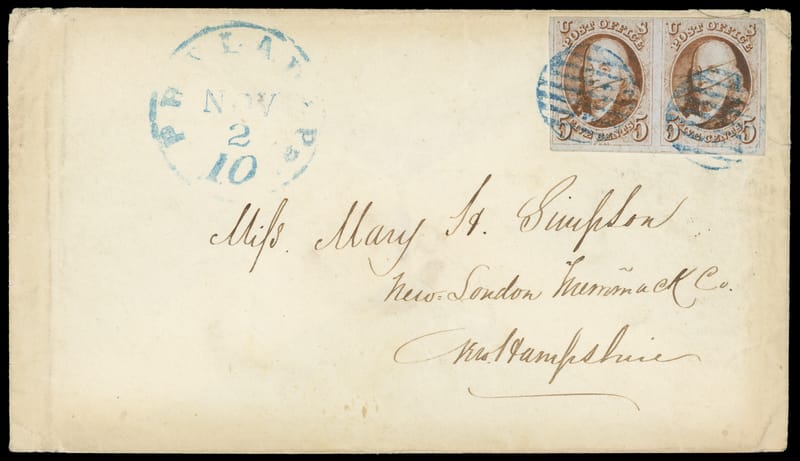 PHILADA Pa
NOV
2
10
U S
POST OFFICE
5 FIVE CENTS 5
U S
POST OFFICE
5 FIVE CENTS 5
Miſs. Mary H. Simpson
New-London Merrimack Co.
New Hampshire